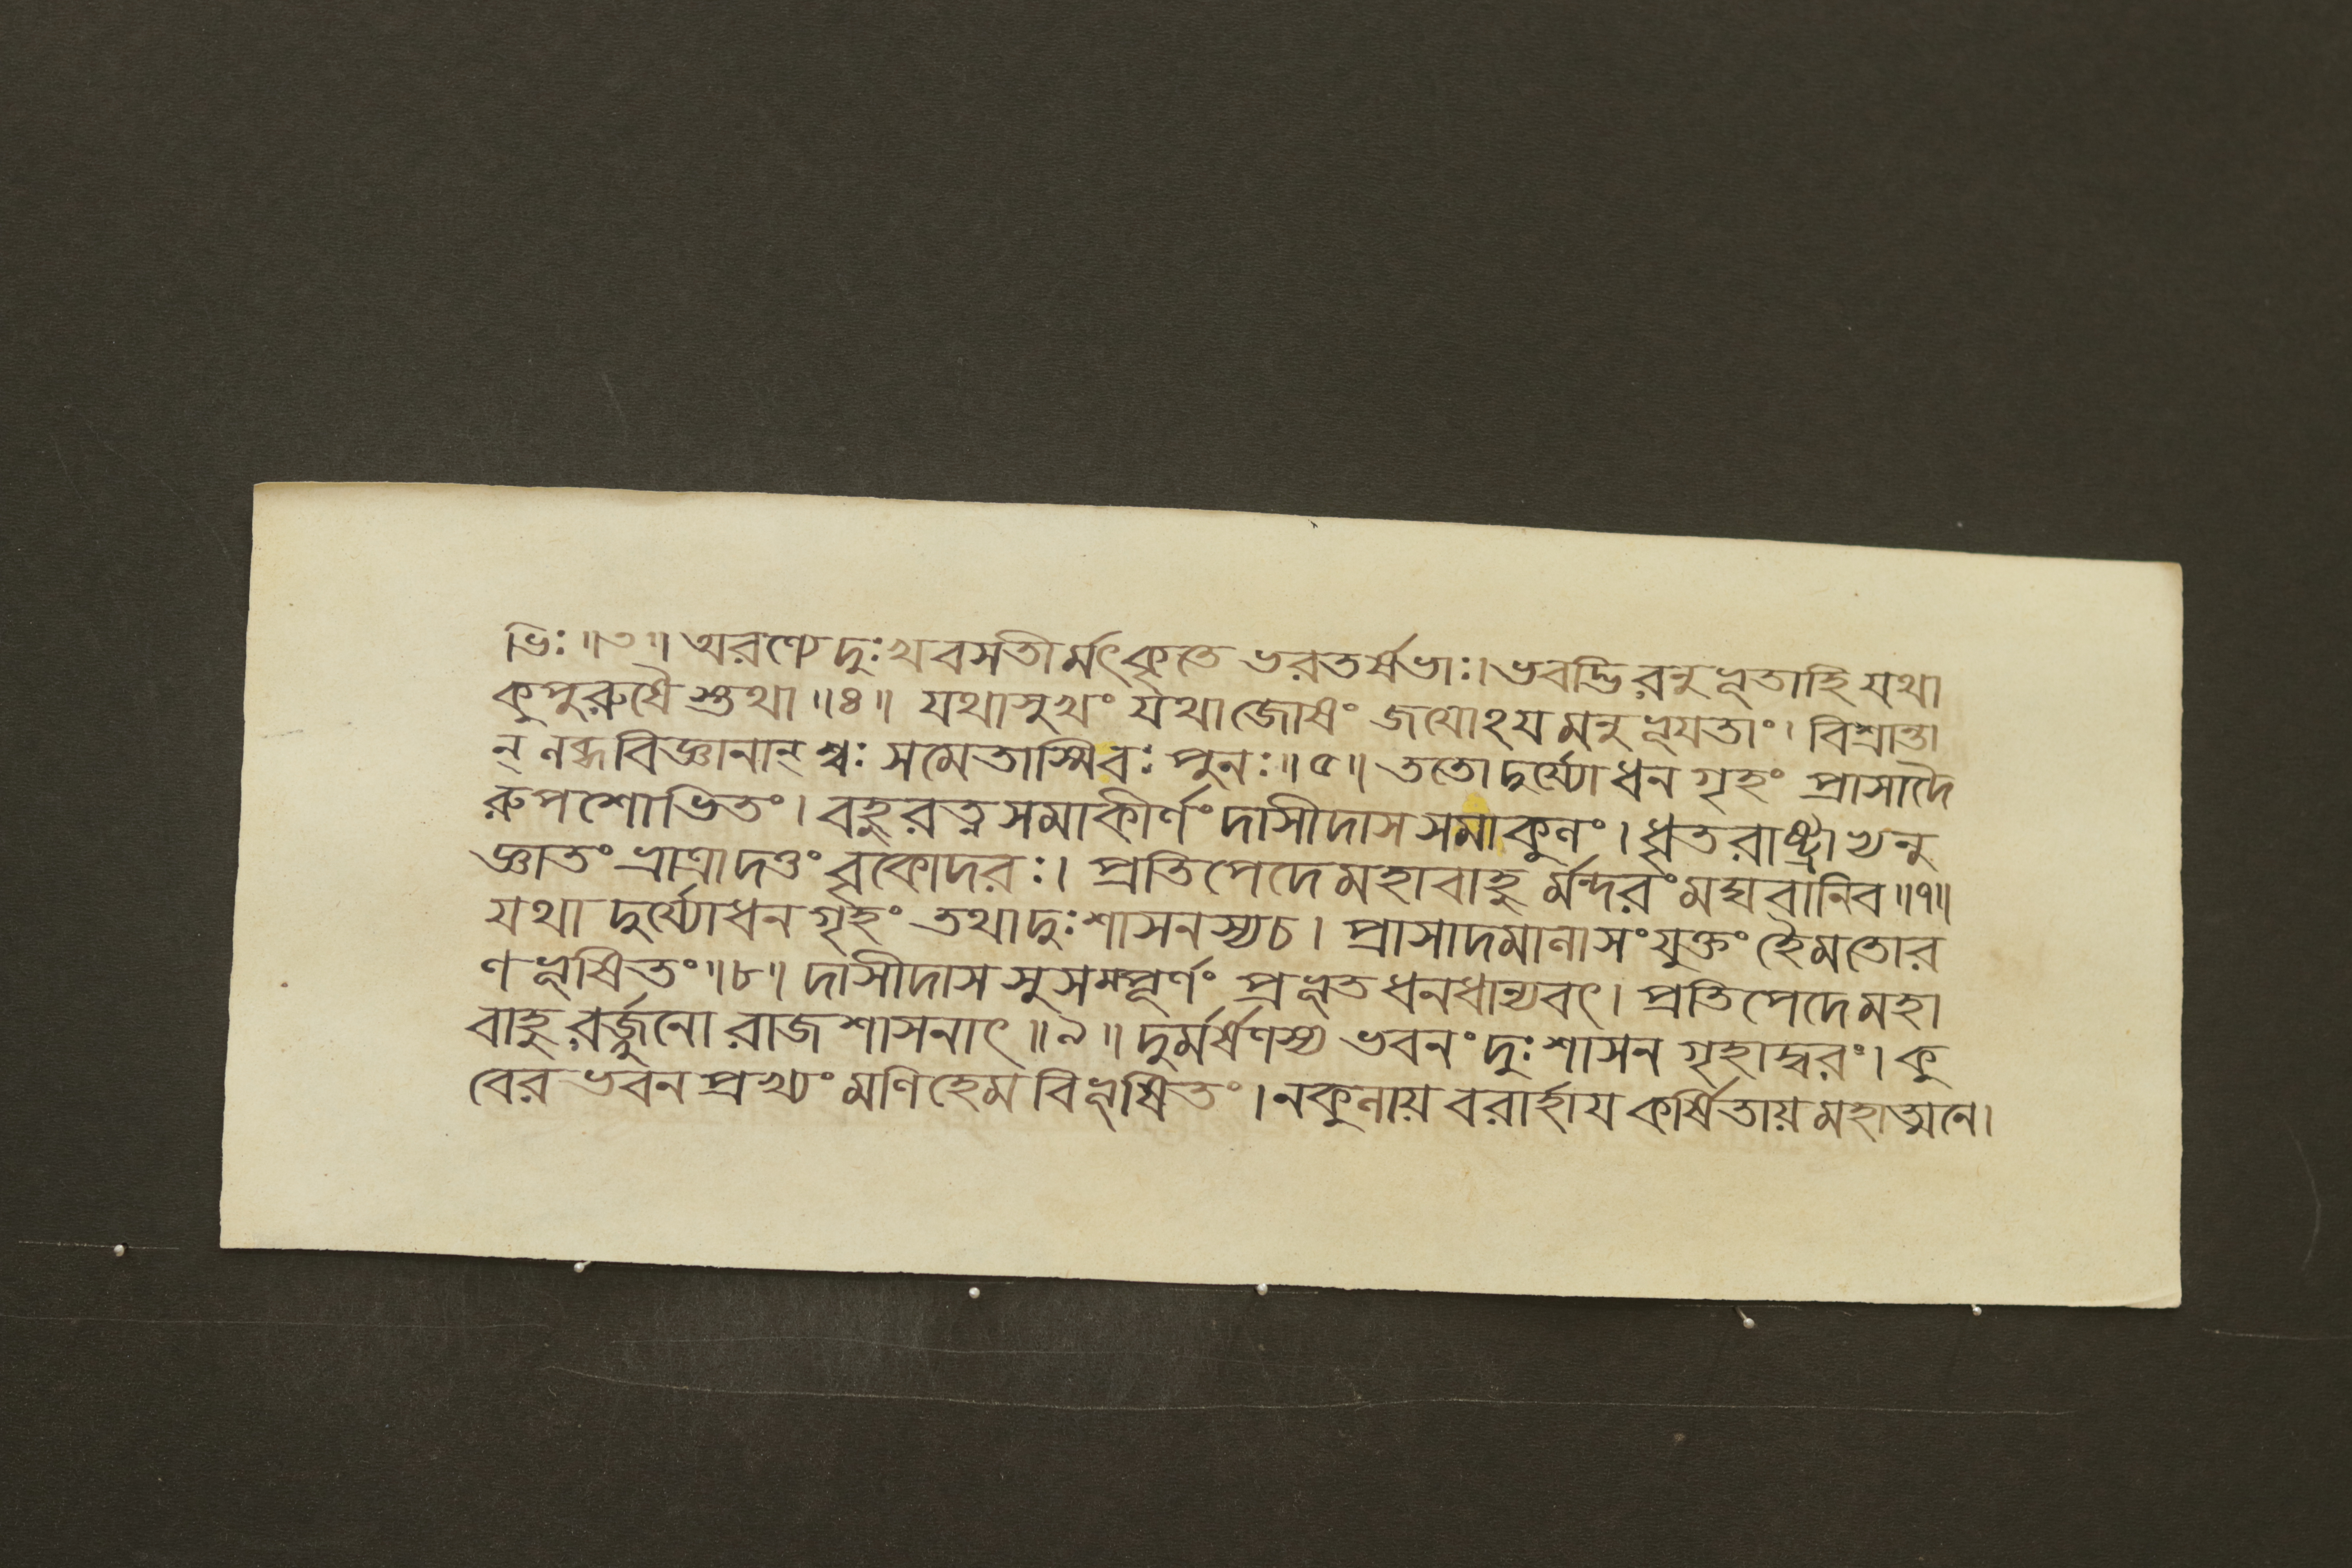 ভিঃ ॥৩॥ অরণ্যে দুঃখবসতীর্মৎকৃতে ভরতর্ষভাঃ। ভবদ্ভিরনুভূতাহি যথা
কুপুরুষৈস্তথা ॥৪॥ যথাসুখং যথাজোষং জয়োঽয়মনুভূয়তাং। বিশ্রান্তা
ন্ লব্ধবিজ্ঞানান্ শ্বঃ সমেতাস্মিবঃ পুনঃ ॥৫॥ ততো দুর্য্যোধনগৃহং প্রাসাদৈ
রুপশোভিতং। বহুরত্নসমাকীর্ণং দাসীদাসসমাকুলং। ধৃতরাষ্ট্রাভ্যনু
জ্ঞাতং ভ্রাত্রাদত্তং বৃকোদরঃ। প্রতিপেদে মহাবাহুর্মন্দরং মঘবানিব ॥৭॥
যথা দুর্য্যোধনগৃহং তথা দুঃশাসনস্যচ। প্রাসাদমালাসংযুক্তং হৈমতোর
ণভূষিতং ॥৮॥ দাসীদাসসুসম্পূর্ণং প্রভূতধনধান্যবৎ। প্রতিপেদে মহা
বাহুরর্জ্জুনো রাজশাসনাৎ ॥৯॥ দুর্মর্ষণস্য ভবনং দুঃশাসনগৃহাদ্বরং। কু
বেরভবনপ্রখ্যং মণিহেমবিভূষিতং। নকুলায় বরার্হায় কর্ষিতায় মহাত্মনে।